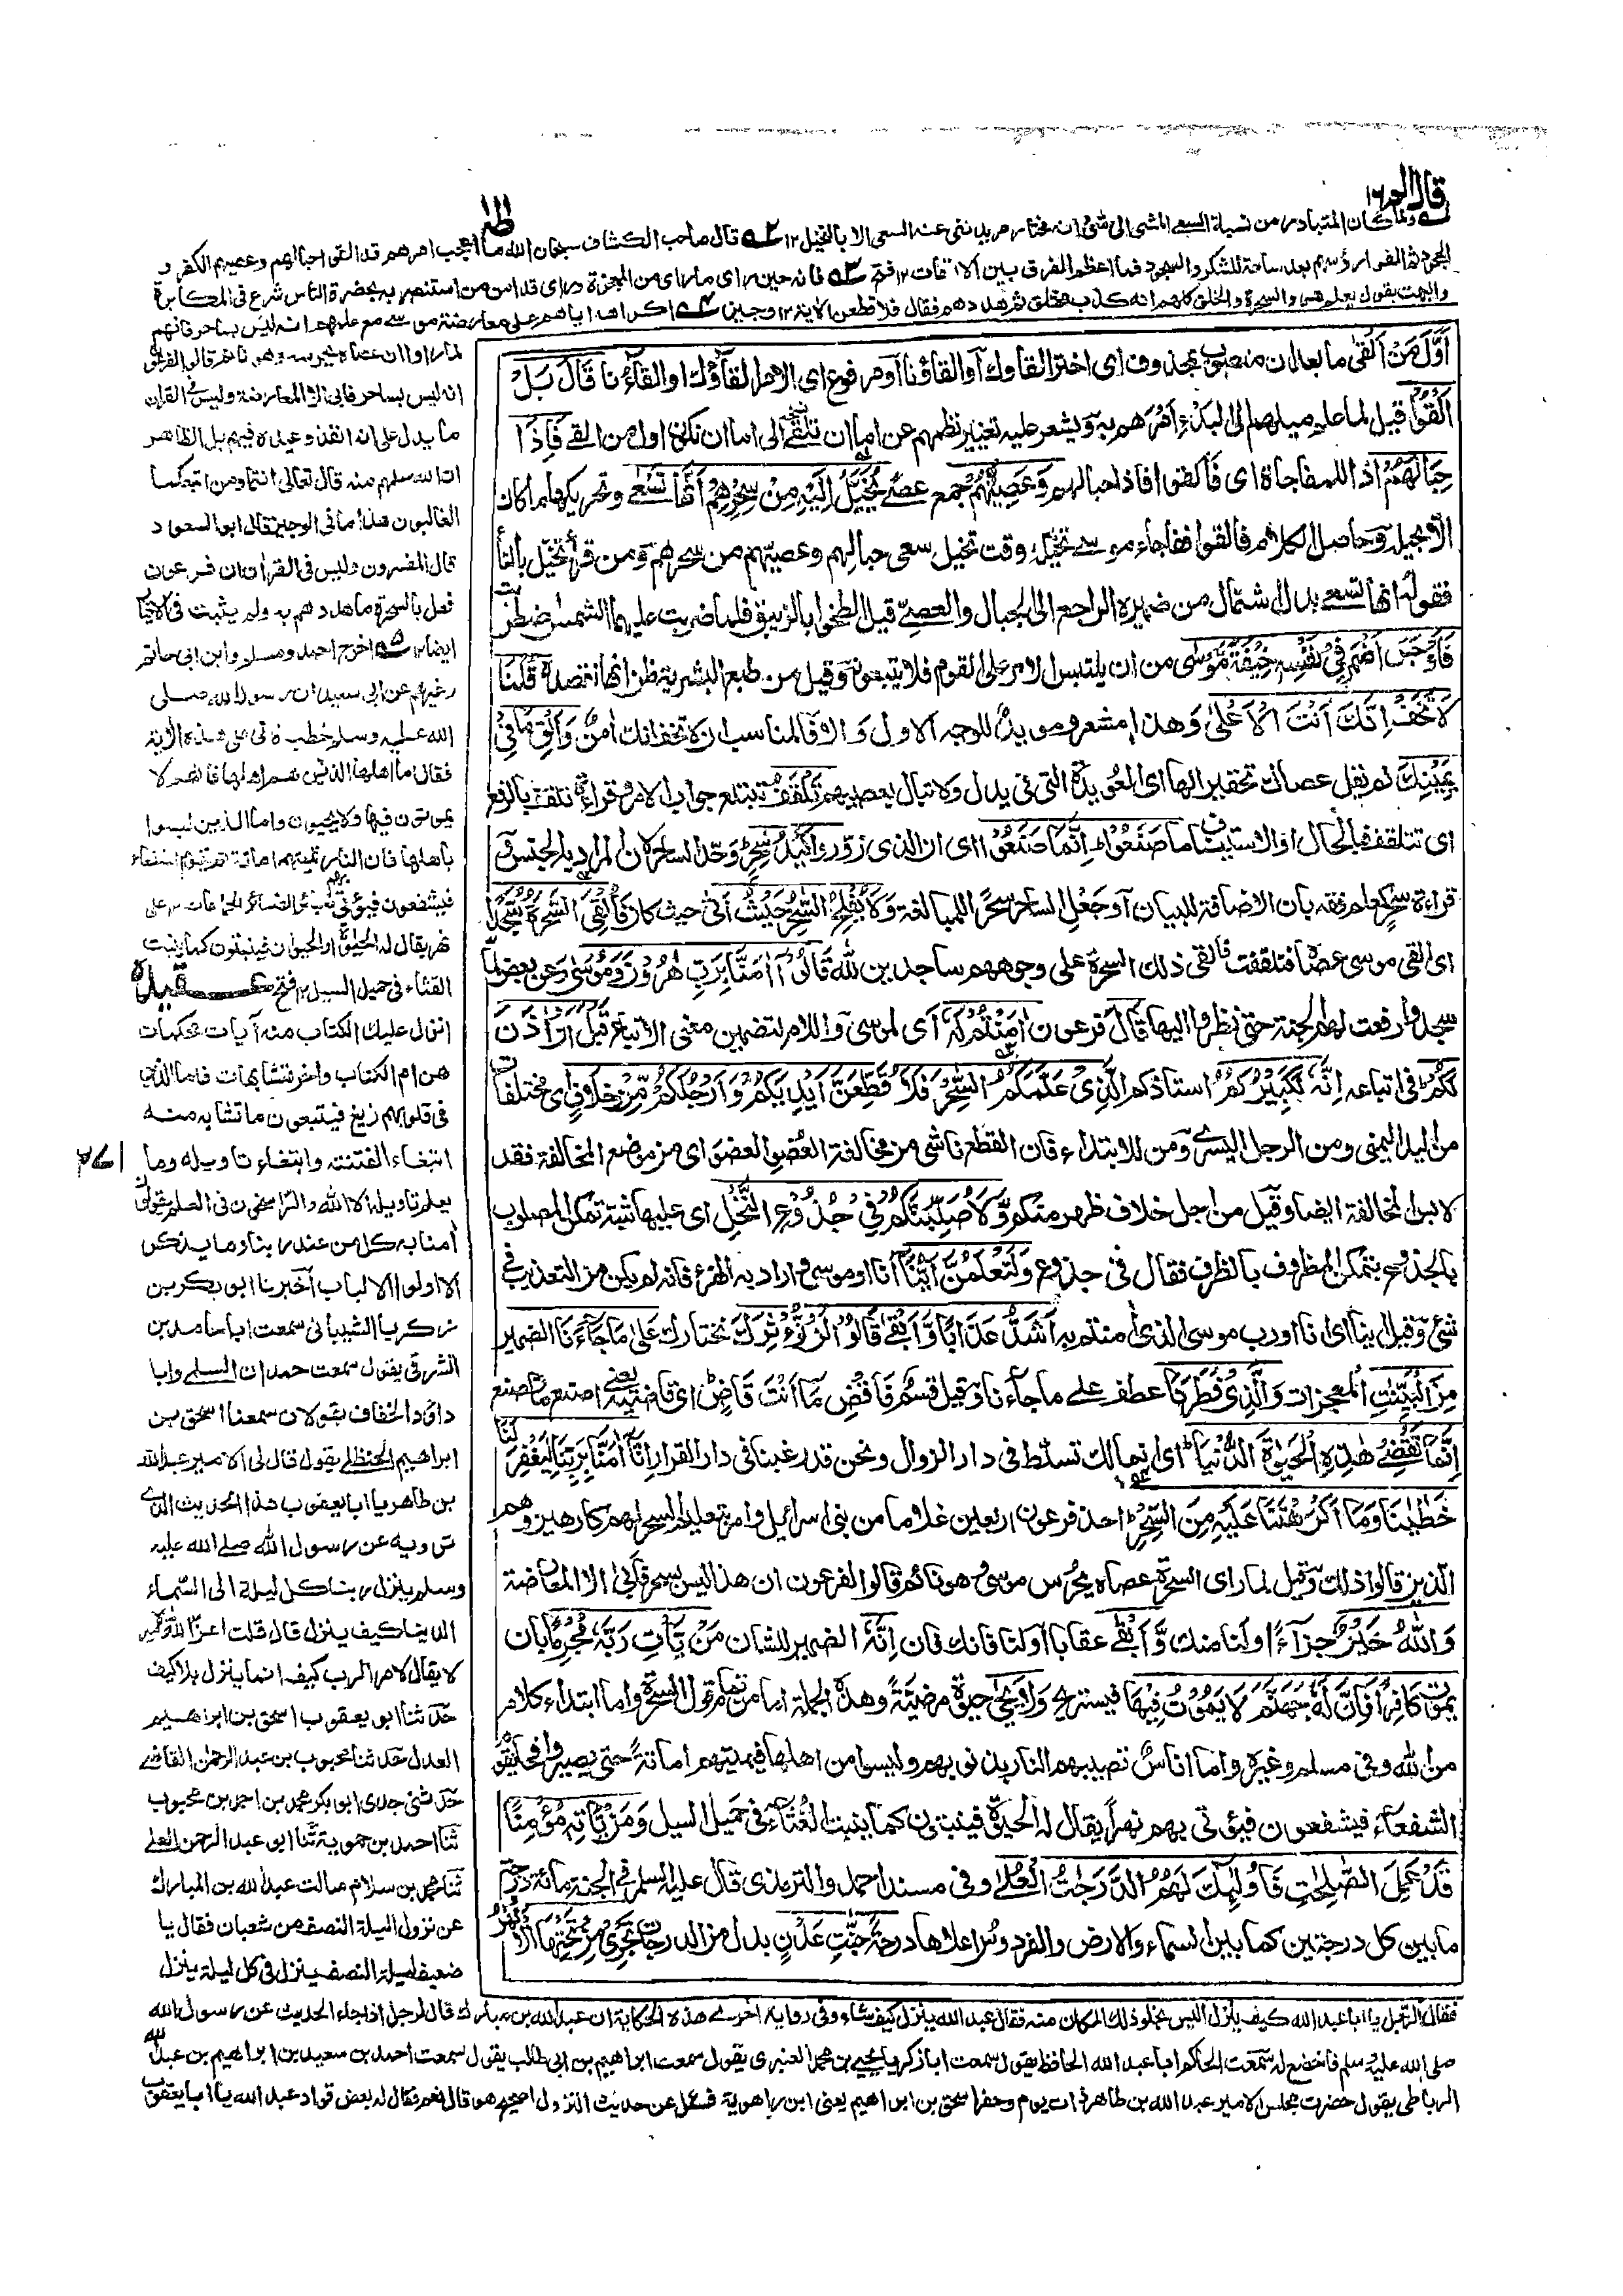 قال الم ١٦
طه
له ولما كان المتبادر من نسبة السعى المشى الى شئ انه مختار مريد نفى عنه السعى الا بالتخيل ١٢ قال صاحب الكشاف سبحان الله ما اعجب امرهم قد القى احبالهم وعصيهم الكفر و
الجحود ثم القوا رؤسهم بعد ساعة للشكر والسجود فما اعظم الفرق بين الالقاءات ١٢ فتح فانه حين راى ما راى من المعجزة وراى قد امن من استنصر به بحضرة الناس شرع فى المكابرة
والبهت بقول يعلم هو والسحرة والخلق كلهم انه كذب مختلق ثم هددهم فقال فلاقطعن الآية ١٢ وجيز اكراهه اياهم على معارضة موسى مع علمهم انه ليس بساحر فانهم
اَوَّلَ مَنْ اَلْقٰى ما بعد ان منصوب بمحذوف اى اختر القاوك او القاؤنا او مرفوع اى الامر القاؤك او القاؤنا قَالَ بَلْ
اَلْقُوْا قيل لما علم ميلهم الى البدء اَمَرَهم به ويشعر عليه تغيير نظمهم عن اما ان تلقى الى اما ان نكون اول من القى فَاِذَا
حِبَالُهُمْ اذا للمفاجاة اى فالقوا فاذا حبالهم وَعِصِيُّهُمْ جمع عصى يُخَيَّلُ اِلَيْهِ مِنْ سِحْرِهِمْ اَنَّهَا تَسْعٰى وتحريكها ما كان
الا بحيل وحاصل الكلام فالقوا ففاجاء موسى تخيل وقت تخيل سعى حبالهم وعصيهم من سحرهم ومن قرأ تخيل بالتاء
فقوله انها تسعى بدل اشتمال من ضميره الراجع الى الحبال والعصى قيل لطخوا بالزيبق فلما ضربت عليها الشمس اضطربت
فَاَوْجَسَ اضمر فِيْ نَفْسِهٖ خِيْفَةً مُّوْسٰى من ان يلتبس الامر على القوم فلا يتبعونه وقيل من طبع البشرية ظن انها تقصده قُلْنَا
لَا تَخَفْ اِنَّكَ اَنْتَ الْاَعْلٰى وهذا مشعر ومويد للوجه الاول والا فالمناسب ان لا تخف انك امن وَاَلْقِ مَا فِيْ
يَمِيْنِكَ لم يقل عصاك تحقيرا لها اى العويدة التى فى يدك ولا تبال بعصيهم تَلْقَفْ تبتلع جواب الامر وقراءة تلقف بالرفع
اى تتلقف فبالحال او الاستيناف مَا صَنَعُوْا اِنَّمَا صَنَعُوْا اى ان الذى زوروا كَيْدُ سٰحِرٍ وحد الساحر لان المراد به الجنس وفى
قراءة سحر كعلم فقه بان الاضافة للبيان او جعل الساحر سحرا للمبالغة وَلَا يُفْلِحُ السّٰحِرُ حَيْثُ اَتٰى حيث كان فَاُلْقِيَ السَّحَرَةُ سُجَّدًا
اى القى موسى عصاه فتلقفت فالقى ذلك السحرة على وجوههم ساجدين لله قَالُوْا اٰمَنَّا بِرَبِّ هٰرُوْنَ وَمُوْسٰى وعن بعض لما
سجدوا رفعت لهم الجنة حتى نظروا اليها قَالَ فرعون اٰمَنْتُمْ لَهٗ اى لموسى واللام لتضمين معنى الاتباع قَبْلَ اَنْ اٰذَنَ
لَكُمْ فى اتباعه اِنَّهٗ لَكَبِيْرُكُمُ استاذكم الَّذِيْ عَلَّمَكُمُ السِّحْرَ فَلَاُقَطِّعَنَّ اَيْدِيَكُمْ وَاَرْجُلَكُمْ مِّنْ خِلَافٍ اى مختلفات
من اليد اليمنى ومن الرجل اليسرى ومن للابتداء فان القطع ناشى من مخالفة العضو العضو اى من موضع المخالفة فقد
لابس المخالفة ايضا وقيل من اجل خلاف ظهر منكم وَّلَاُصَلِّبَنَّكُمْ فِيْ جُذُوْعِ النَّخْلِ اى عليها شبه تمكن المصلوب
بالجذوع بتمكن المظروف بالظرف فقال فى جذوع وَلَتَعْلَمُنَّ اَيُّنَا انا او موسى واراد به الهزء فانه لم يكن من التعذيب فى
شئ وقيل اينا اى انا او رب موسى الذى امنتم به اَشَدُّ عَذَابًا وَّاَبْقٰى قَالُوْا لَنْ نُّؤْثِرَكَ نختارك عَلٰى مَا جَآءَنَا الضمير
مِنَ الْبَيِّنٰتِ المعجزات وَالَّذِيْ فَطَرَنَا عطف على ما جاءنا وقيل قسم فَاقْضِ مَا اَنْتَ قَاضٍ اى قاضيه يعنى اصنع ما تصنع
اِنَّمَا تَقْضِيْ هٰذِهِ الْحَيٰوةَ الدُّنْيَا اى انما لك تسلط فى دار الزوال ونحن قد رغبنا فى دار القرار اِنَّا اٰمَنَّا بِرَبِّنَا لِيَغْفِرَ لَنَا
خَطٰيٰنَا وَمَا اَكْرَهْتَنَا عَلَيْهِ مِنَ السِّحْرِ اخذ فرعون اربعين غلاما من بنى اسرائيل وامر بتعليم السحر لهم كارهين وهم
الذين قالوا ذلك وقيل لما راى السحرة عصاه يحرس موسى وهو نائم قالوا لفرعون ان هذا ليس بسحر فابى الا المعارضة
وَاللّٰهُ خَيْرٌ جزاءً او لنا منك وَّاَبْقٰى عقابا او لنا فانك فان اِنَّهٗ الضمير للشان مَنْ يَّاْتِ رَبَّهٗ مُجْرِمًا بان
يموت كافرا فَاِنَّ لَهٗ جَهَنَّمَ لَا يَمُوْتُ فِيْهَا فيستريح وَلَا يَحْيٰى حيوة مرضية وهذه الجملة اما من تمام قول السحرة واما ابتداء كلام
من الله وفى مسلم وغيره واما اناس تصيبهم النار بذنوبهم وليسوا من اهلها فيميتهم اماتة حتى يصيروا فحما يقوم
الشفعاء فيشفعون فيؤتى بهم نهرا يقال له الحيوة فينبتون كما ينبت الغثاء فى حميل السيل وَمَنْ يَّاْتِهٖ مُؤْمِنًا
قَدْ عَمِلَ الصّٰلِحٰتِ فَاُولٰٓئِكَ لَهُمُ الدَّرَجٰتُ الْعُلٰى وفى مسند احمد والترمذى قال عليه السلم فى الجنة مائة درجة
ما بين كل درجتين كما بين السماء والارض والفردوس اعلاها درجة جَنّٰتُ عَدْنٍ بدل من الدرجات تَجْرِيْ مِنْ تَحْتِهَا الْاَنْهٰرُ
لما راوا ان عصاه تحرسه وهو نائم قالوا لفرعون
انه ليس بساحر فابى الا المعارضة وليس فى القران
ما يدل على انه انفذ وعيده فيهم بل الظاهر
ان الله سلمهم منه قال تعالى انتما ومن اتبعكما
الغالبون هذا ما فى الوجيز قال ابو السعود
قال المفسرون وليس فى القرأن ان فرعون
فعل بالسحرة ما هددهم به ولم يثبت فى الاخبار
ايضا ١٢ اخرج احمد ومسلم وابن ابى حاتم
وغيرهم عن ابى سعيد ان رسول الله صلى
الله عليه وسلم خطب فاتى على هذه الاية
فقال ما اهلها الذين هم اهلها فانهم لا
يموتون فيها ولا يحيون واما الذين ليسوا
باهلها فان النار تميتهم اماتة ثم يقوم الشفعاء
فيشفعون فيؤتى بهم ضبائر على
نهر يقال له الحيوة او الحيوان فينبتون كما ينبت
القثاء فى حميل السيل ١٢ فتح عـــقيلة
انزل عليك الكتاب منه آيات محكمات
هن ام الكتاب واخر متشابهات فاما الذين
فى قلوبهم زيغ فيتبعون ما تشابه منه
ابتغاء الفتنة وابتغاء تاويله وما
يعلم تاويله الا الله والراسخون فى العلم يقولون
أمنا به كل من عند ربنا وما يذكر
الا اولوا الالباب اخبرنا ابو بكر بن
زكريا الشيبانى سمعت ابا حامد بن
الشرقى يقول سمعت حمدان السلمى وابا
داؤد الخفاف يقولان سمعنا اسحق بن
ابراهيم الحنظلى يقول قال لى الامير عبد الله
بن طاهر يا ابا يعقوب هذا الحديث الذى
ترويه عن رسول الله صلى الله عليه
وسلم ينزل ربنا كل ليلة الى السماء
الدنيا كيف ينزل قال قلت اعز الله الامير
لا يقال لامر الرب كيف انما ينزل بلا كيف
حدثنا ابو يعقوب اسحق بن ابراهيم
العدل حدثنا محبوب بن عبد الرحمن القاضى
حدثنى جدى ابو بكر محمد بن احمد بن محبوب
ثنا احمد بن حموية ثنا ابو عبد الرحمن العتكى
ثنا محمد بن سلام سالت عبد الله بن المبارك
عن نزول ليلة النصف من شعبان فقال يا
ضعيف ليلة النصف ينزل فى كل ليلة ينزل
فقال الرجل يا ابا عبد الله كيف ينزل اليس يخلو ذلك المكان منه فقال عبد الله ينزل كيف شاء وفى رواية اخرى هذه الحكاية ان عبد الله بن مبارك قال للرجل اذا جاء الحديث عن رسول الله
صلى الله عليه وسلم فاخضع له سمعت الحاكم ابا عبد الله الحافظ يقول سمعت ابا زكريا يحيى بن محمد العنبرى يقول سمعت ابراهيم بن ابى طالب يقول سمعت احمد بن سعيد بن ابراهيم بن عبد الله
الرباطى يقول حضرت مجلس الامير عبد الله بن طاهر ذات يوم وحضر اسحق بن ابراهيم يعنى ابن راهوية فسئل عن حديث النزول اصحيح هو قال نعم فقال له بعض قواد عبد الله يا ابا يعقوب